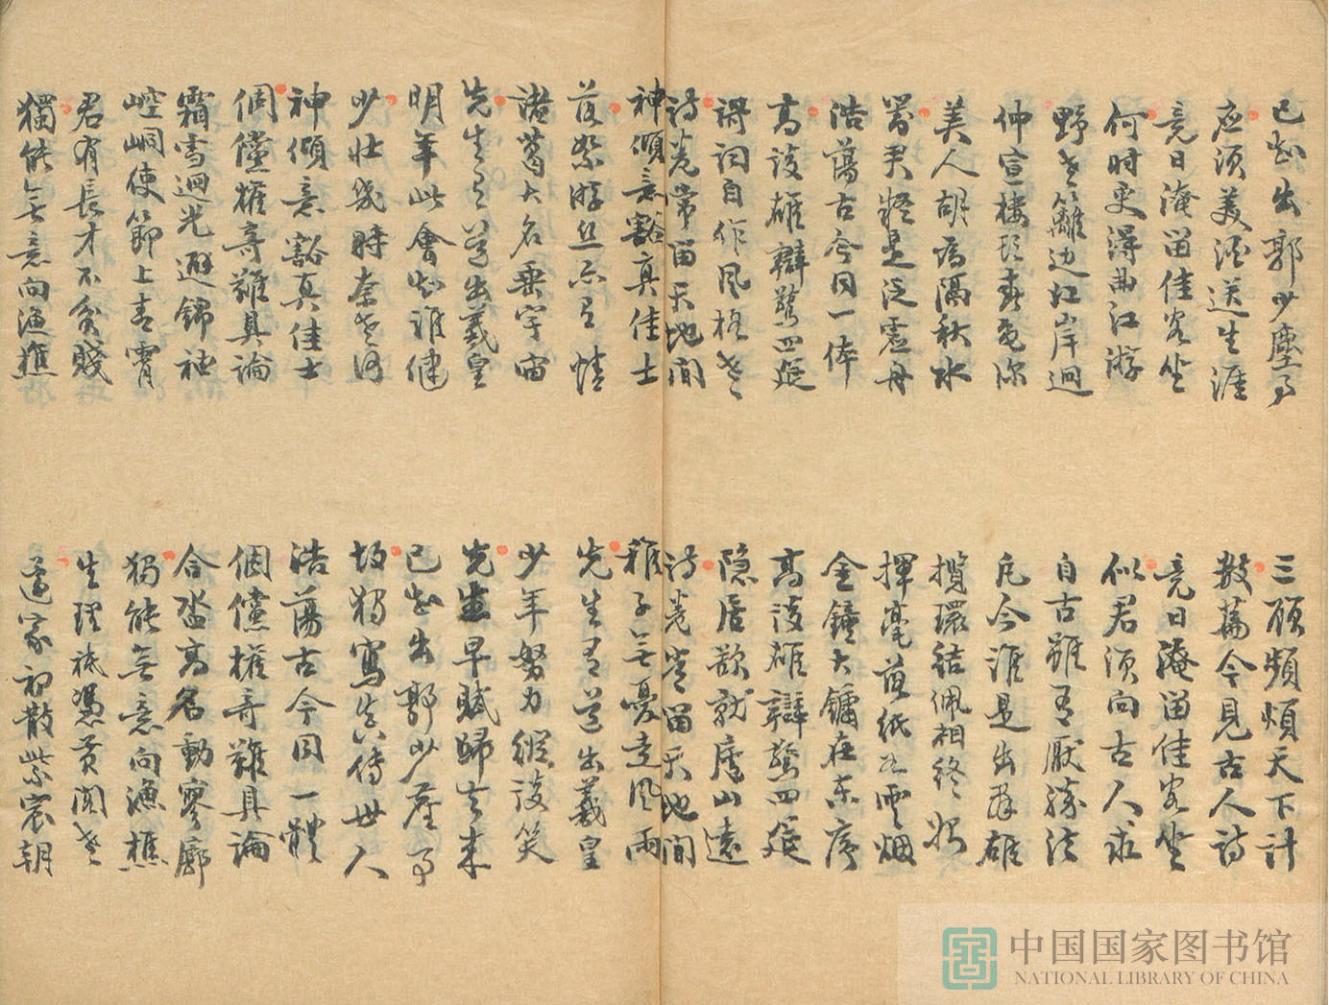 已知出郭少塵事
三顧頻煩天下計
应须美酒送生涯
數篇今見古人詩
竟日淹留佳客坐
竟日淹留佳客坐
何时更得曲江游
似君须向古人求
野老籬边江岸迴
自古雖有厭勝法
仲宣樓頭春色深
凡今誰是出群雄
美人胡為隔秋水
攬環結佩相終始
對君疑是泛虛舟
揮毫落紙如雲烟
浩蕩古今同一体
金鐘大鏞在東序
高談雄辯驚四筵
高談雄辯驚四筵
謌詞自作風格老
隱居欲就廬山遠
詩卷常留天地間
詩卷長留天地間
神傾意豁真佳士
稚子無憂走風雨
落絮游丝亦有情
先生有道出羲皇
諸葛大名垂宇宙
少年努力縱談笑
先生有道出羲皇
先生早賦歸去來
明年此會知谁健
已知出郭少塵事
少壯幾時奈老何
故獨寫真傳世人
神傾意豁真佳士
浩蕩古今同一體
倜儻權奇難具論
倜儻權奇難具論
霜雪迴光避錦袖
合沓高名動寥廓
崆峒使節上青霄
獨能無意向漁樵
君有長才不貧賤
生理祇憑黃閣老
獨能無意向漁樵
還家初散紫宸朝
中国国家图书馆
NATIONAL LIBRARY OF CHINA